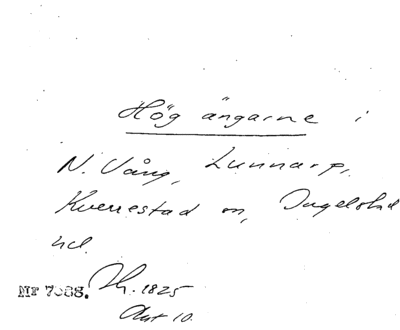 Hög ängarne i
N. Vång, Lunnarp,
Kverrestad sn, Ingelstad
hd.
Nr 7088. Th. 1825
Akt 10.